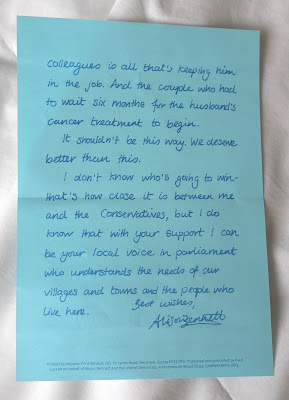 colleagues is all that's keeping him
in the job. And the couple who had
to wait six months for the husband's
cancer treatment to begin.
It shouldn't be this way. We deserve
better than this.
I don't know who's going to win-
that's how close it is between me
and the Conservatives, but I do
know that with your support I can
be your local voice in parliament
who understands the needs of our
villages and towns and the people who
live here.
Best wishes,
Alison Bennett